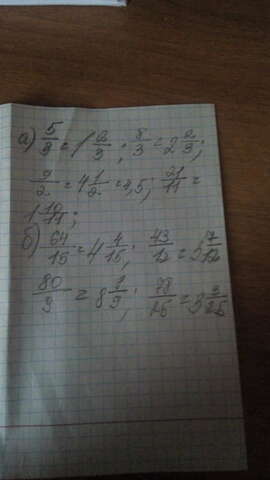 а) 5/3 = 1 2/3 ; 8/3 = 2 2/3 ;
9/2 = 4 1/2 = 4,5 ; 21/11 =
1 10/11 ;
б) 64/15 = 4 4/15 ; 43/12 = 3 7/12
80/9 = 8 8/9 ; 78/25 = 3 3/25